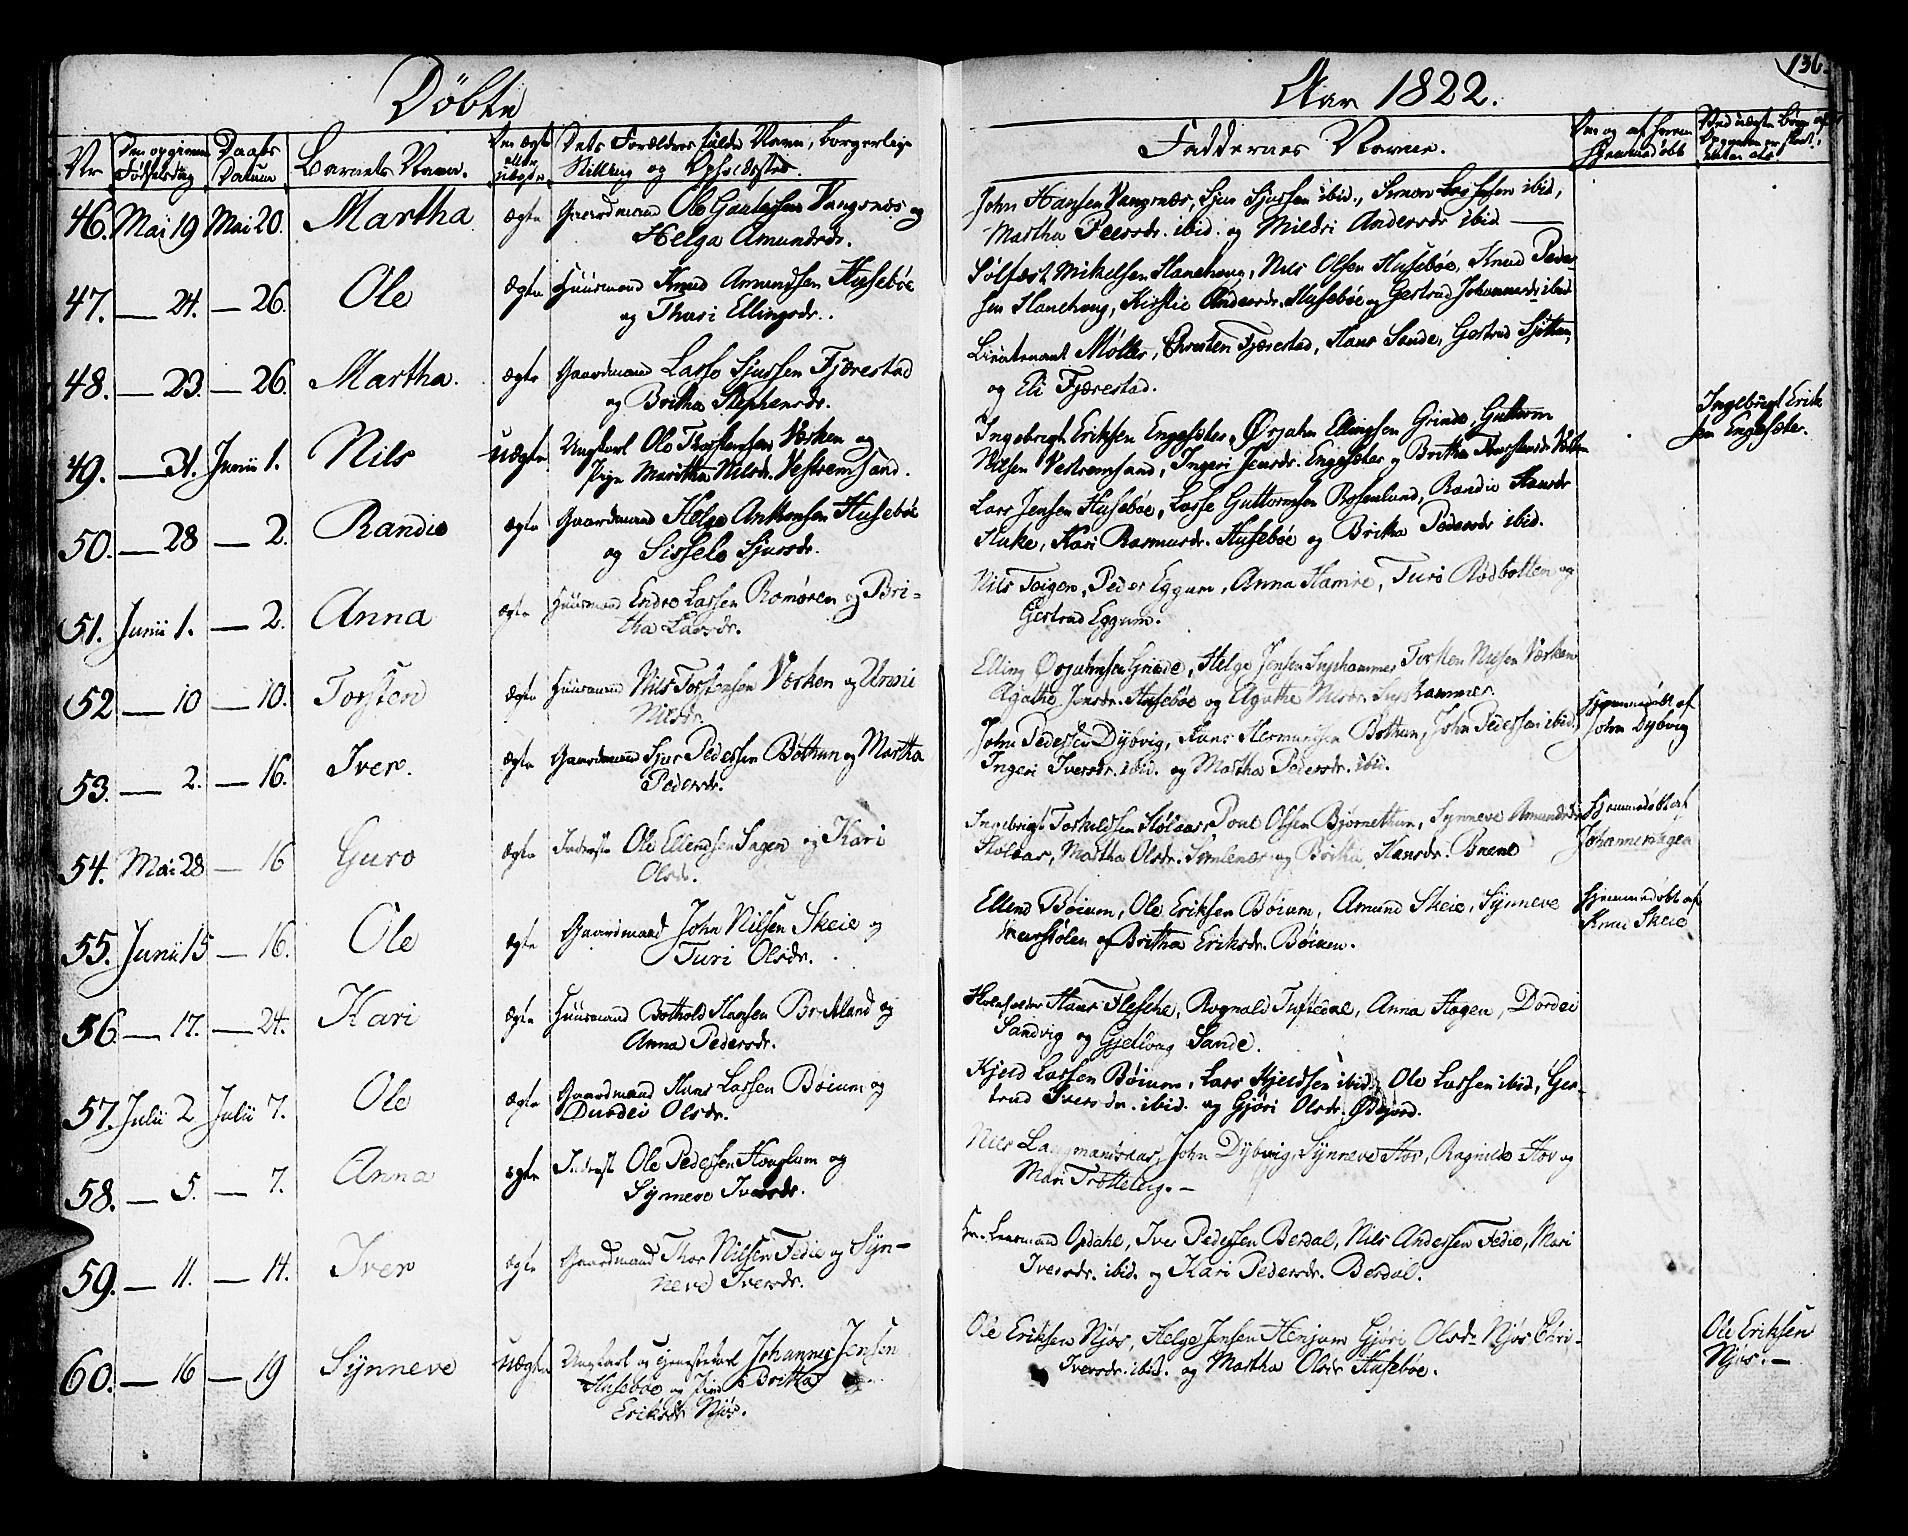 Døbte
Aar 1822.
136.
Nr
Den opgivne Fødselsdag
Daabs Datum
Barnets Navn.
Om ægte eller uægte
Dets Forældres fulde Navn, borgerlige Stilling og Opholdsted.
Faddernes Navne.
Om og af hvem hjemmedøbt
46. Mai 19 Mai 20. Martha ægte Gaardmand Ole Vangsnæs og
Helga Amundsdr.
John Hansen Vangsnæs, Sjur Sjursen ibid., Simon Lassesen ibid,
Martha Peersdr. ibid. og Mildri Andersdr ibid
47. — 24. — 26. Ole ægte Huusmand Knud Amundsen Husebøe
og Thuri Ellingsdr.
Sølfæst Mikelsen Hanehoug, Nils Olsen Husebøe, Knud Peder-
sen Hanehoug, Kirstie Andersdr. Husebøe og Gertrud Johannesdr ibid
48. — 23 — 26. Martha. ægte Gaardmand Lasse Sjursen Fjærestad
og Britha Stephensdr.
Lieutenant Møller, Christen Fjærestad, Hans Sande, Gertrud
og Eli Fjærestad.
49. — 31. Junii 1. Nils uægte Ungkarl Ole Thorstensen Værken og
Pige Maritha Nilsdr. Vestremsand.
Ingebrigt Eriksen Engesæter, Ørjahn Ellingsen Grinde, Guttorm
Nilsen Vestremsand, Ingeri Jensdr. Engesæter og Britha Thorstensdr Værken
Ingebrigt Erik
sen Engesæter.
50. — 28 — 2. Randie ægte Gaardmand Helge Anthonsen Husebøe
og Sissele Sjursdr.
Lars Jensen Husebøe, Lasse Guttormsen Rosenlund, Randie Hansdr
Huke, Kari Rasmusdr. Husebøe og Britha Pedersdr ibid.
51. Junii 1. — 2. Anna ægte Huusmand Endre Larsen Romøren og Bri-
tha Larsdr.
Nils Teigen, Peder Eggum, Anna Hamre, Turi Rødbotten og
Gertrud Eggum.
52 — 10 — 10. Torsten ægte Huusmand Nils Torstensen Værken og Unni
Nilsdr.
Elling Ørjahnsen Grinde, Helge Jensen Suphammer Torsten Nilsen Værken
Agathe Jensdr. Husebøe og Agathe Nilsdr. Suphammer.
53. — 2. — 16. Iver. ægte Gaardmand Sjur Pedersen Bøthun og Martha
Pedersdr.
John Pedersen Dybvig, Hans Hermundsen Bøthun, John Pedersen ibid,
Ingeri Iversdr. ibid. og Martha Pedersdr. ibid.
Hjemmedøbt af
John Dybvig
54. Mai 28 — 16 Guro ægte Inderste Ole Ellendsen Hagen og Kari
Olsdr.
Ingebrigt Torkildsen Stølaas, Poul Olsen Bjørnethun, Synneve Amundsdr
Stølaas, Martha Olsdr. Simlenæs og Britha Hansdr.
Hjemmedøbt af
Johannes Hagen
55. Junii 15 — 16. Ole ægte Gaardmand John Nilsen Skeie og
Turi Olsdr.
Ellend Bøium, Ole Eriksen Bøium, Amund Skeie, Synneve
og Britha Eriksdr. Bøium.
Hjemmedøbt af
Knud Skeie
56 — 17. — 24. Kari ægte Huusmand Bothold Hansen Brekland og
Anna Pedersdr.
Skoleholder Hans Flesche, Rognald Tuftedal, Anna Hagen, Dordei
Sandvig og Gjetlaug Sande.
57. Julii 2 Julii 7. Ole ægte Gaardmand Hans Lassen Bøium og
Durdei Olsdr.
Kjeld Lassen Bøium, Lars Kjeldsen ibid, Ole Lassen ibid, Ger-
trud Iversdr. ibid. og Gjøri Olsdr. Ødegord.
58. — 5. — 7. Anna ægte Inderst Ole Pedersen Houglum og
Synneve Iversdr.
Nils Langmandsaas, John Dybvig, Synneve Hov, Ragnilde Hov og
Mari —
59. — 11. — 14. Iver ægte Gaardmand Thor Nilsen Fedie og Syn-
neve Iversdr.
Hr. Leensmand Opdahl, Iver Pedersen Berdal, Nils Andersen Fedie, Mari
Iversdr. ibid. og Kari Pedersdr. Berdal.
60. — 16 — 19 Synneve uægte Ungkarl og Johannes Jensen
Husebøe og Pige Britha
Eriksdr Njøs.
Ole Eriksen Njøs, Helge Jensen Henjum Gjøri Olsdr Njøs,
Iversdr. ibid. og Martha Olsdr Husebøe.
Ole Eriksen
Njøs. —